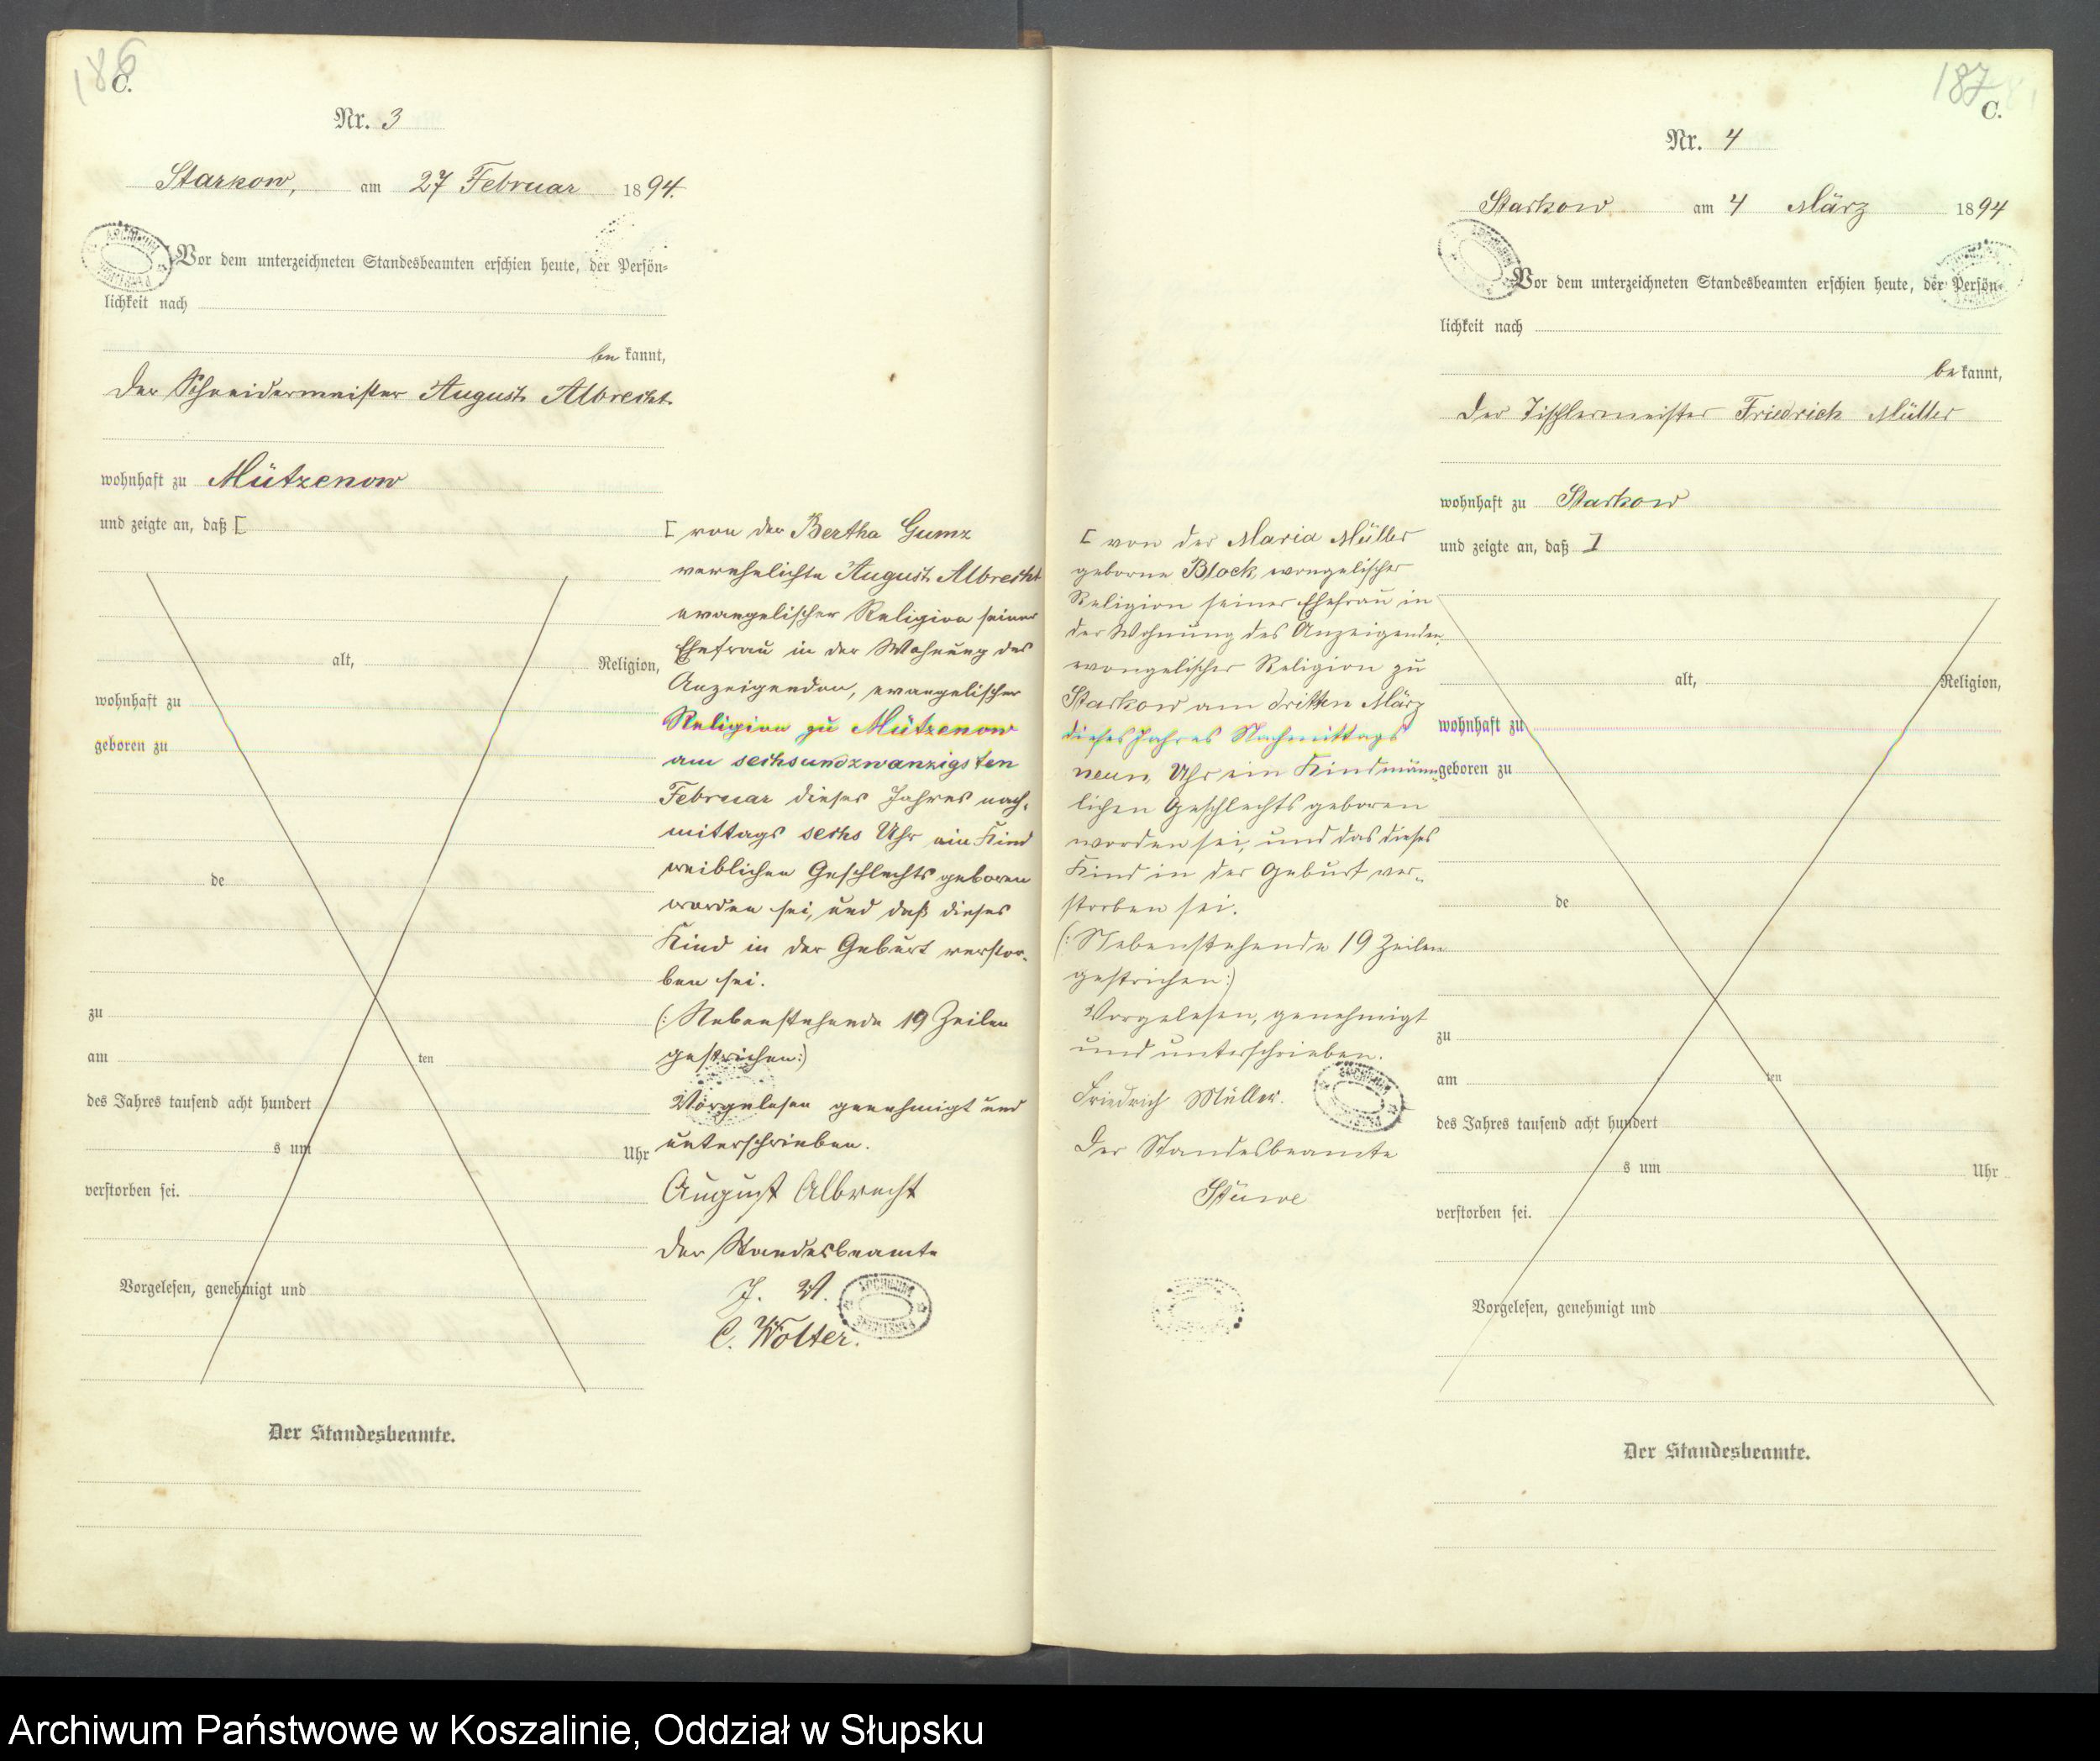 186
C.
Nr. 3
Starkow, am 27 Februar 1894.
Vor dem unterzeichneten Standesbeamten erschien heute, der Persön-
lichkeit nach
be kannt,
der Schneidermeister August Albrecht
wohnhaft zu Mützenow
und zeigte an, daß [
[ von der Bertha Gumz
verehelichte August Albrecht
evangelischer Religion seiner
Ehefrau in der Wohnung des
Anzeigenden, evangelischer
Religion zu Mützenow
am sechsundzwanzigsten
Februar dieses Jahres nach-
mittags sechs Uhr ein Kind
weiblichen Geschlechts geboren
worden sei, und daß dieses
Kind in der Geburt verstor-
ben sei.
(: Nebenstehende 19 Zeilen
gestrichen :)
Vorgelesen genehmigt und
unterschrieben.
August Albrecht
Der Standesbeamte
J. V.
C. Wolter.
alt, Religion,
wohnhaft zu
geboren zu
de
zu
am ten
des Jahres tausend acht hundert
s um Uhr
verstorben sei.
Vorgelesen, genehmigt und
Der Standesbeamte.
187
C.
Nr. 4
Starkow am 4 März 1894
Vor dem unterzeichneten Standesbeamten erschien heute, der Persön-
lichkeit nach
be kannt,
der Tischlermeister Friedrich Müller
wohnhaft zu Starkow
und zeigte an, daß [
[ von der Maria Müller
geborne Block, evangelischer
Religion seiner Ehefrau in
der Wohnung des Anzeigenden,
evangelischer Religion zu
Starkow am dritten März
dieses Jahres Nachmittags
neun Uhr ein Kind männ-
lichen Geschlechts geboren
worden sei, und das dieses
Kind in der Geburt ver-
storben sei.
(: Nebenstehende 19 Zeilen
gestrichen :)
Vorgelesen, genehmigt
und unterschrieben.
Friedrich Müller.
Der Standesbeamte
Stüwe
alt, Religion,
wohnhaft zu
geboren zu
de
zu
am ten
des Jahres tausend acht hundert
s um Uhr
verstorben sei.
Vorgelesen, genehmigt und
Der Standesbeamte.
Archiwum Państwowe w Koszalinie, Oddział w Słupsku